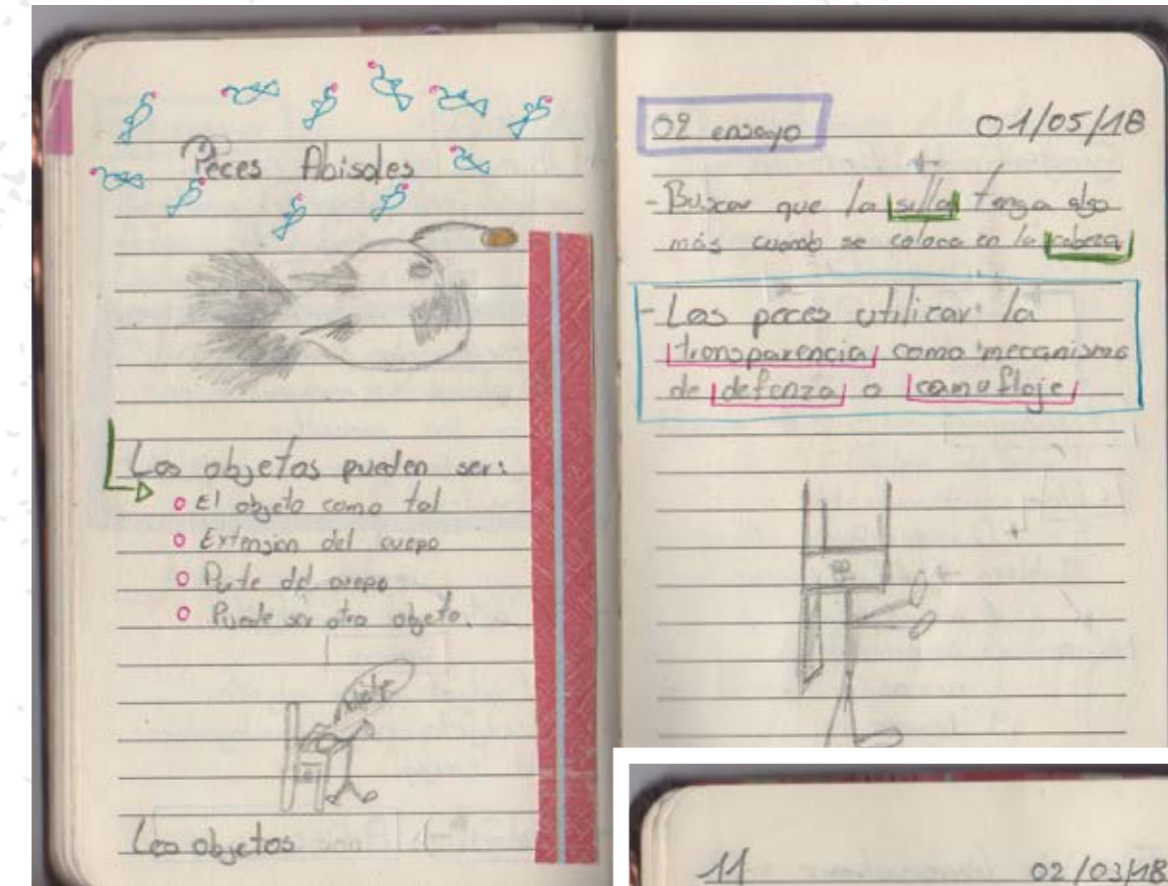 Peces Abisales
Los objetos pueden ser:
El objeto como tal
Extension del cuepo
Parte del cuepo
Puede ser otro objeto.
Los objetos
02 ensayo 01/05/18
- Buscar que la silla tenga algo
más cuando se coloca en la cabeza
- Los peces utilizar la
transparencia como mecanismo
de defenza o camuflaje
11 02/03/18